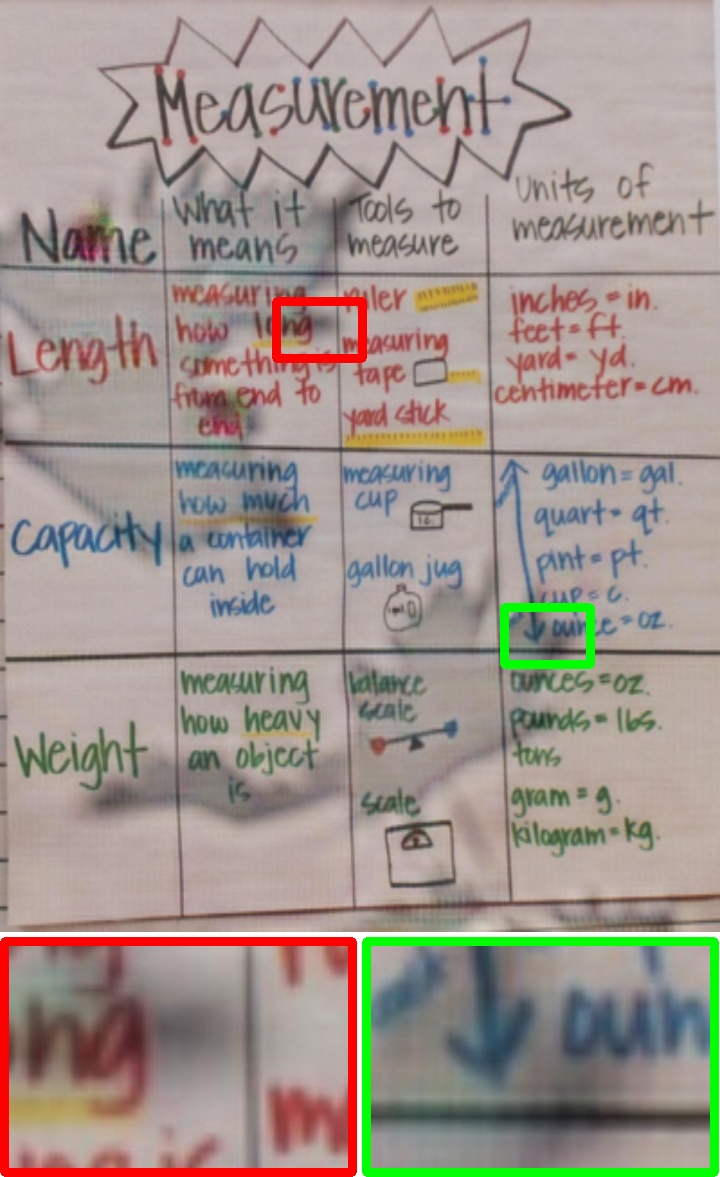 Measurement
Name
What it means
Tools to measure
Units of measurement
Length
measuring
how long
something is
from end to
end
ruler
measuring
tape
yard stick
inches = in.
feet = ft.
yard = yd.
centimeter = cm.
Capacity
measuring
how much
a container
can hold
inside
measuring
cup
1c.
gallon jug
gallon = gal.
quart = qt.
pint = pt.
cup = c.
ounce = oz.
Weight
measuring
how heavy
an object
is
balance
scale
scale
ounces = oz.
pounds = lbs.
tons
gram = g.
kilogram = kg.